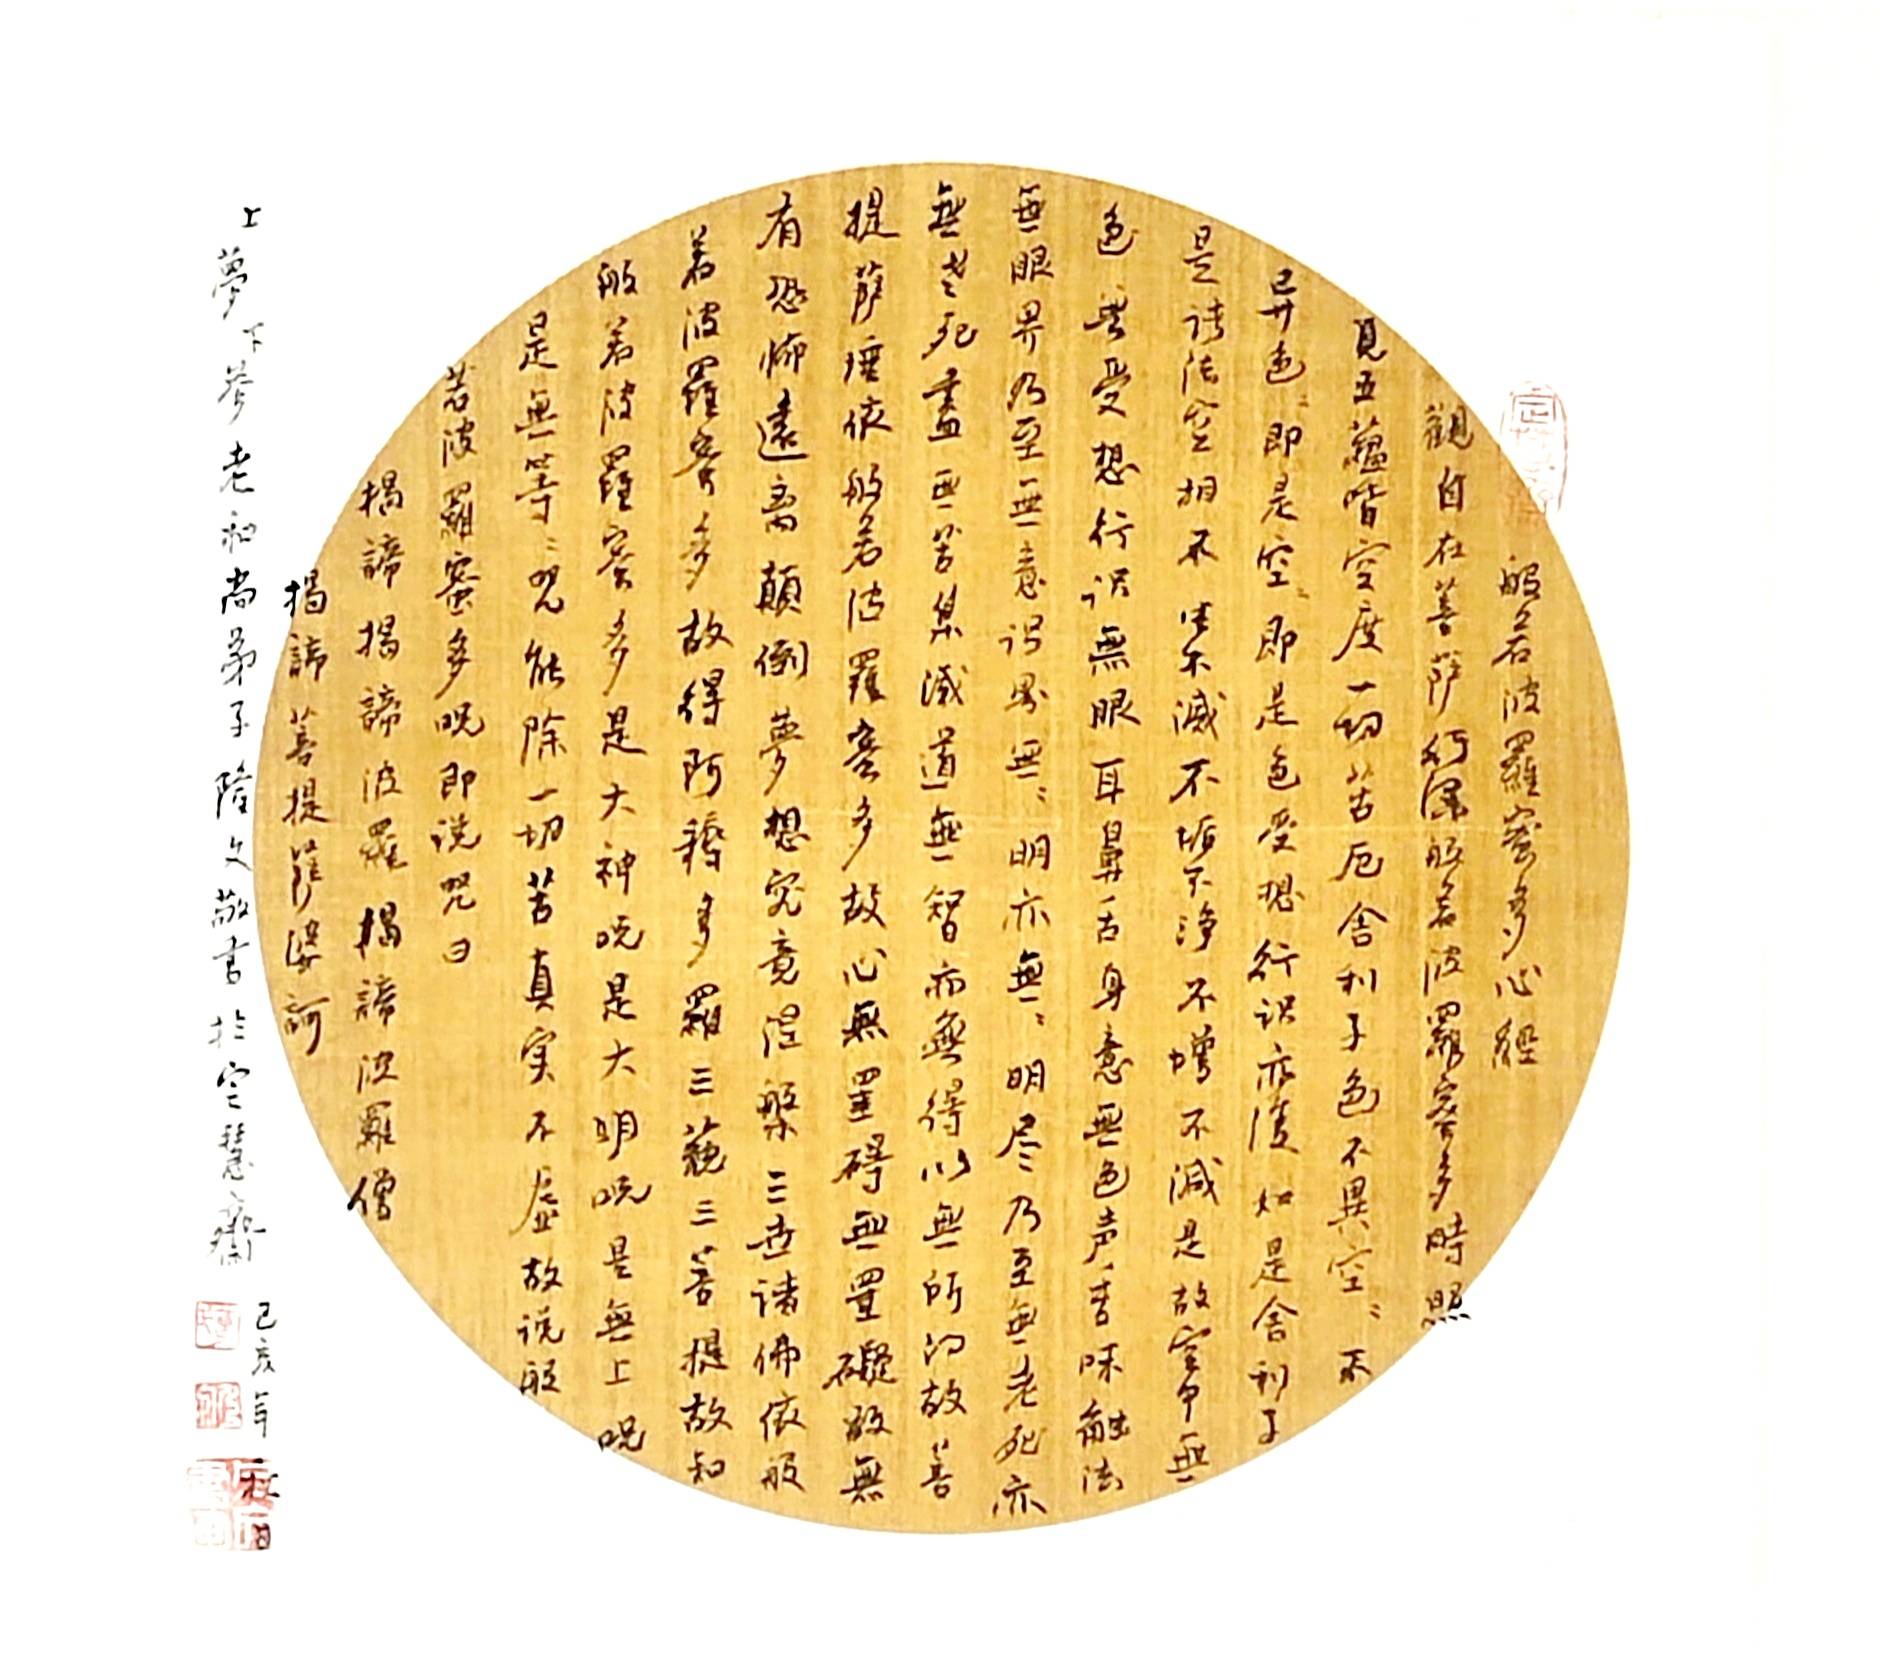 般若波羅蜜多心經
觀自在菩薩行深般若波羅蜜多時照
見五蘊皆空度一切苦厄舍利子色不異空〻不
异色〻即是空〻即是色受想行识亦復如是舍利子
是诸法空相不生不滅不垢不净不增不減是故空中無
色無受想行识無眼耳鼻舌身意無色声香味触法
無眼界乃至無意识界無〻明亦無〻明尽乃至無老死亦
無老死盡無苦集滅道無智亦無得以無所得故菩
提薩埵依般若波羅蜜多故心無罣碍無罣礙故無
有恐怖遠离顛倒夢想究竟涅槃三世諸佛依般
若波羅蜜多故得阿耨多羅三藐三菩提故知
般若波羅蜜多是大神呪是大明呪是無上呪
是無等〻咒能除一切苦真实不虚故说般
若波羅蜜多呪即说咒曰
揭諦揭諦波羅揭諦波羅僧
揭諦菩提薩婆訶
上夢下参老和尚弟子隆文敬书於空慧齋
己亥年秋月